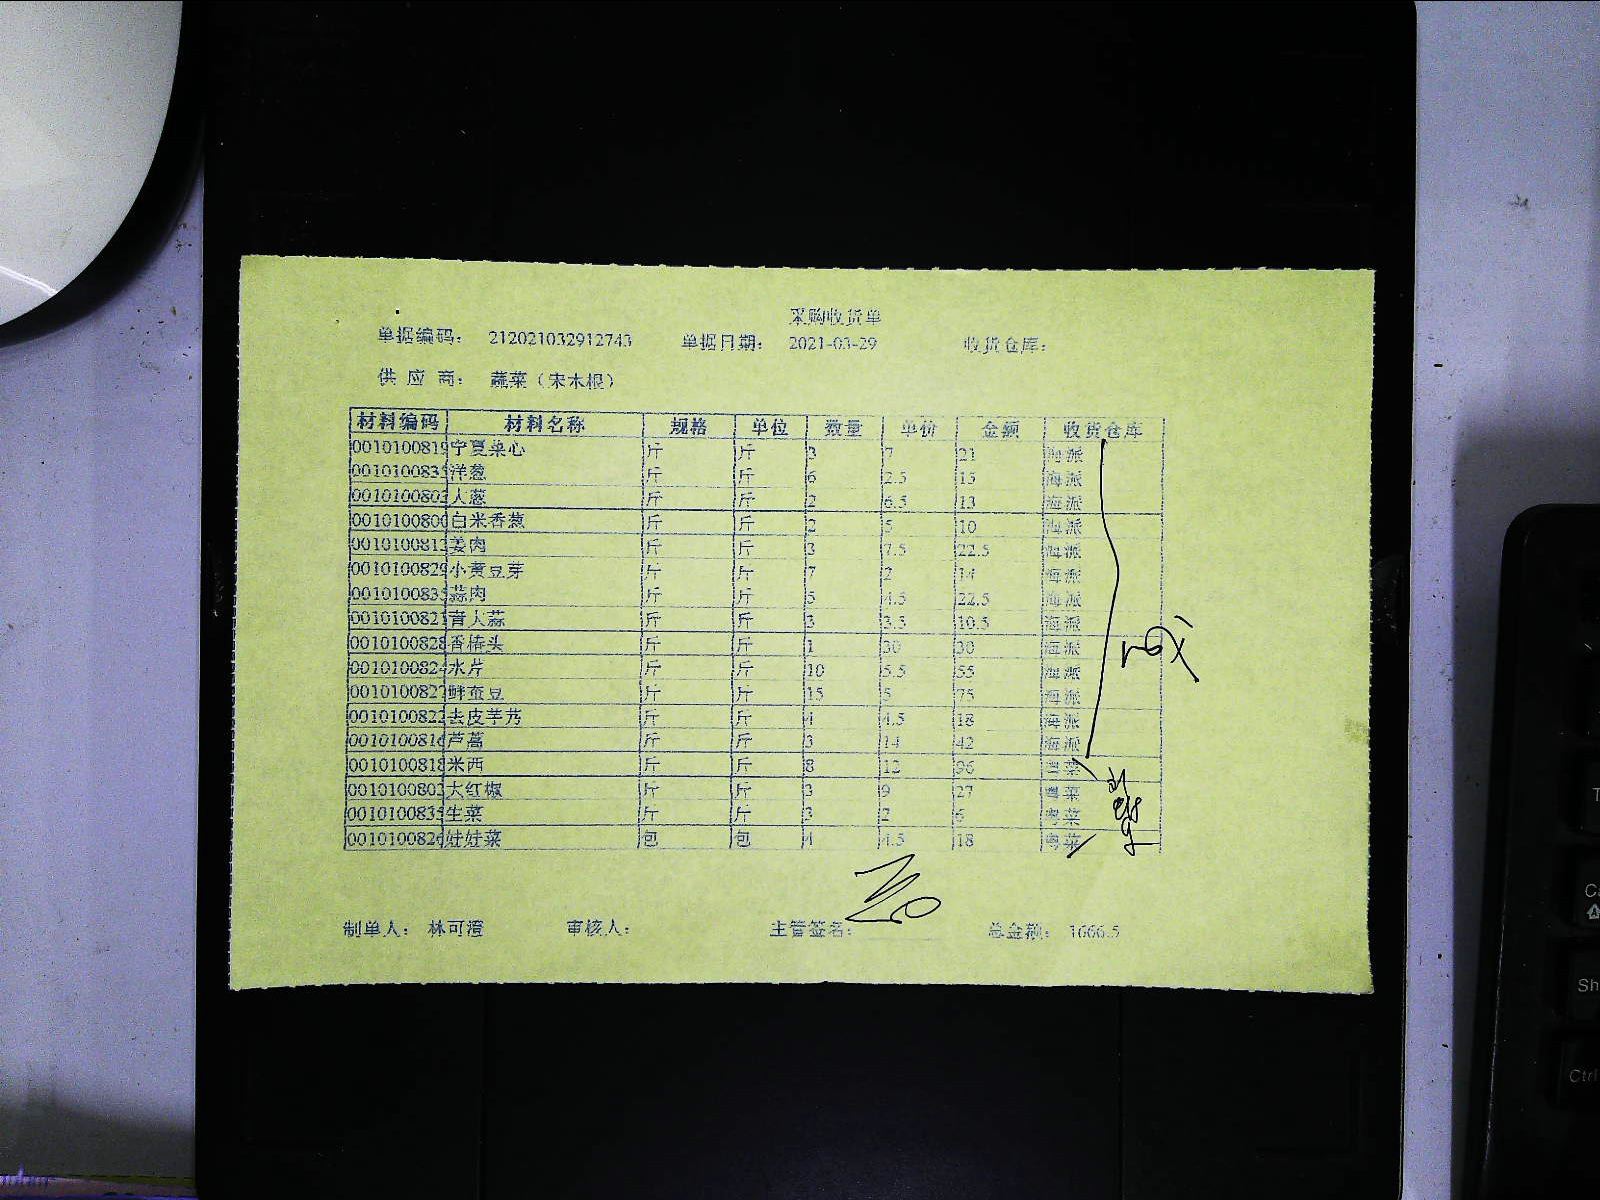 采购收货单
单据编码： 212021032912743 单据日期： 2021-03-29 收货仓库：
供 应 商： 蔬菜（宋木根）
材料编码 材料名称 规格 单位 数量 单价 金额 收货仓库
0010100819 宁夏菜心 斤 斤 3 7 21 海派
001010083 洋葱 斤 斤 6 2.5 15 海派
001010080 大葱 斤 斤 2 6.5 13 海派
0010100800 白米香葱 斤 斤 2 5 10 海派
001010081 姜肉 斤 斤 3 7.5 22.5 海派
0010100829 小黄豆芽 斤 斤 7 2 14 海派
001010083 蒜肉 斤 斤 5 4.5 22.5 海派
001010082 青大蒜 斤 斤 3 3.5 10.5 海派
0010100828 香椿头 斤 斤 1 30 30 海派
001010082 水芹 斤 斤 10 5.5 55 海派
001010082 鲜蚕豆 斤 斤 15 5 75 海派
001010082 去皮芋艿 斤 斤 4 4.5 18 海派
001010081 芦蒿 斤 斤 3 14 42 海派
0010100818 米西 斤 斤 8 12 96 粤菜
001010080 大红椒 斤 斤 3 9 27 粤菜
001010083 生菜 斤 斤 3 2 6 粤菜
001010082 娃娃菜 包 包 4 4.5 18 粤菜
制单人： 林可澄 审核人： 主管签名： 总金额： 1666.5